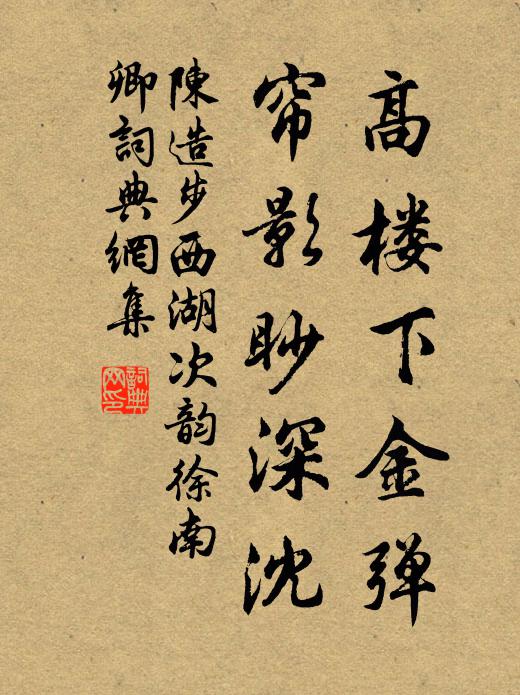 高楼下金弹
帘影眇深沈
陳造步西湖次韵徐南
卿詞典網集
詞典网印